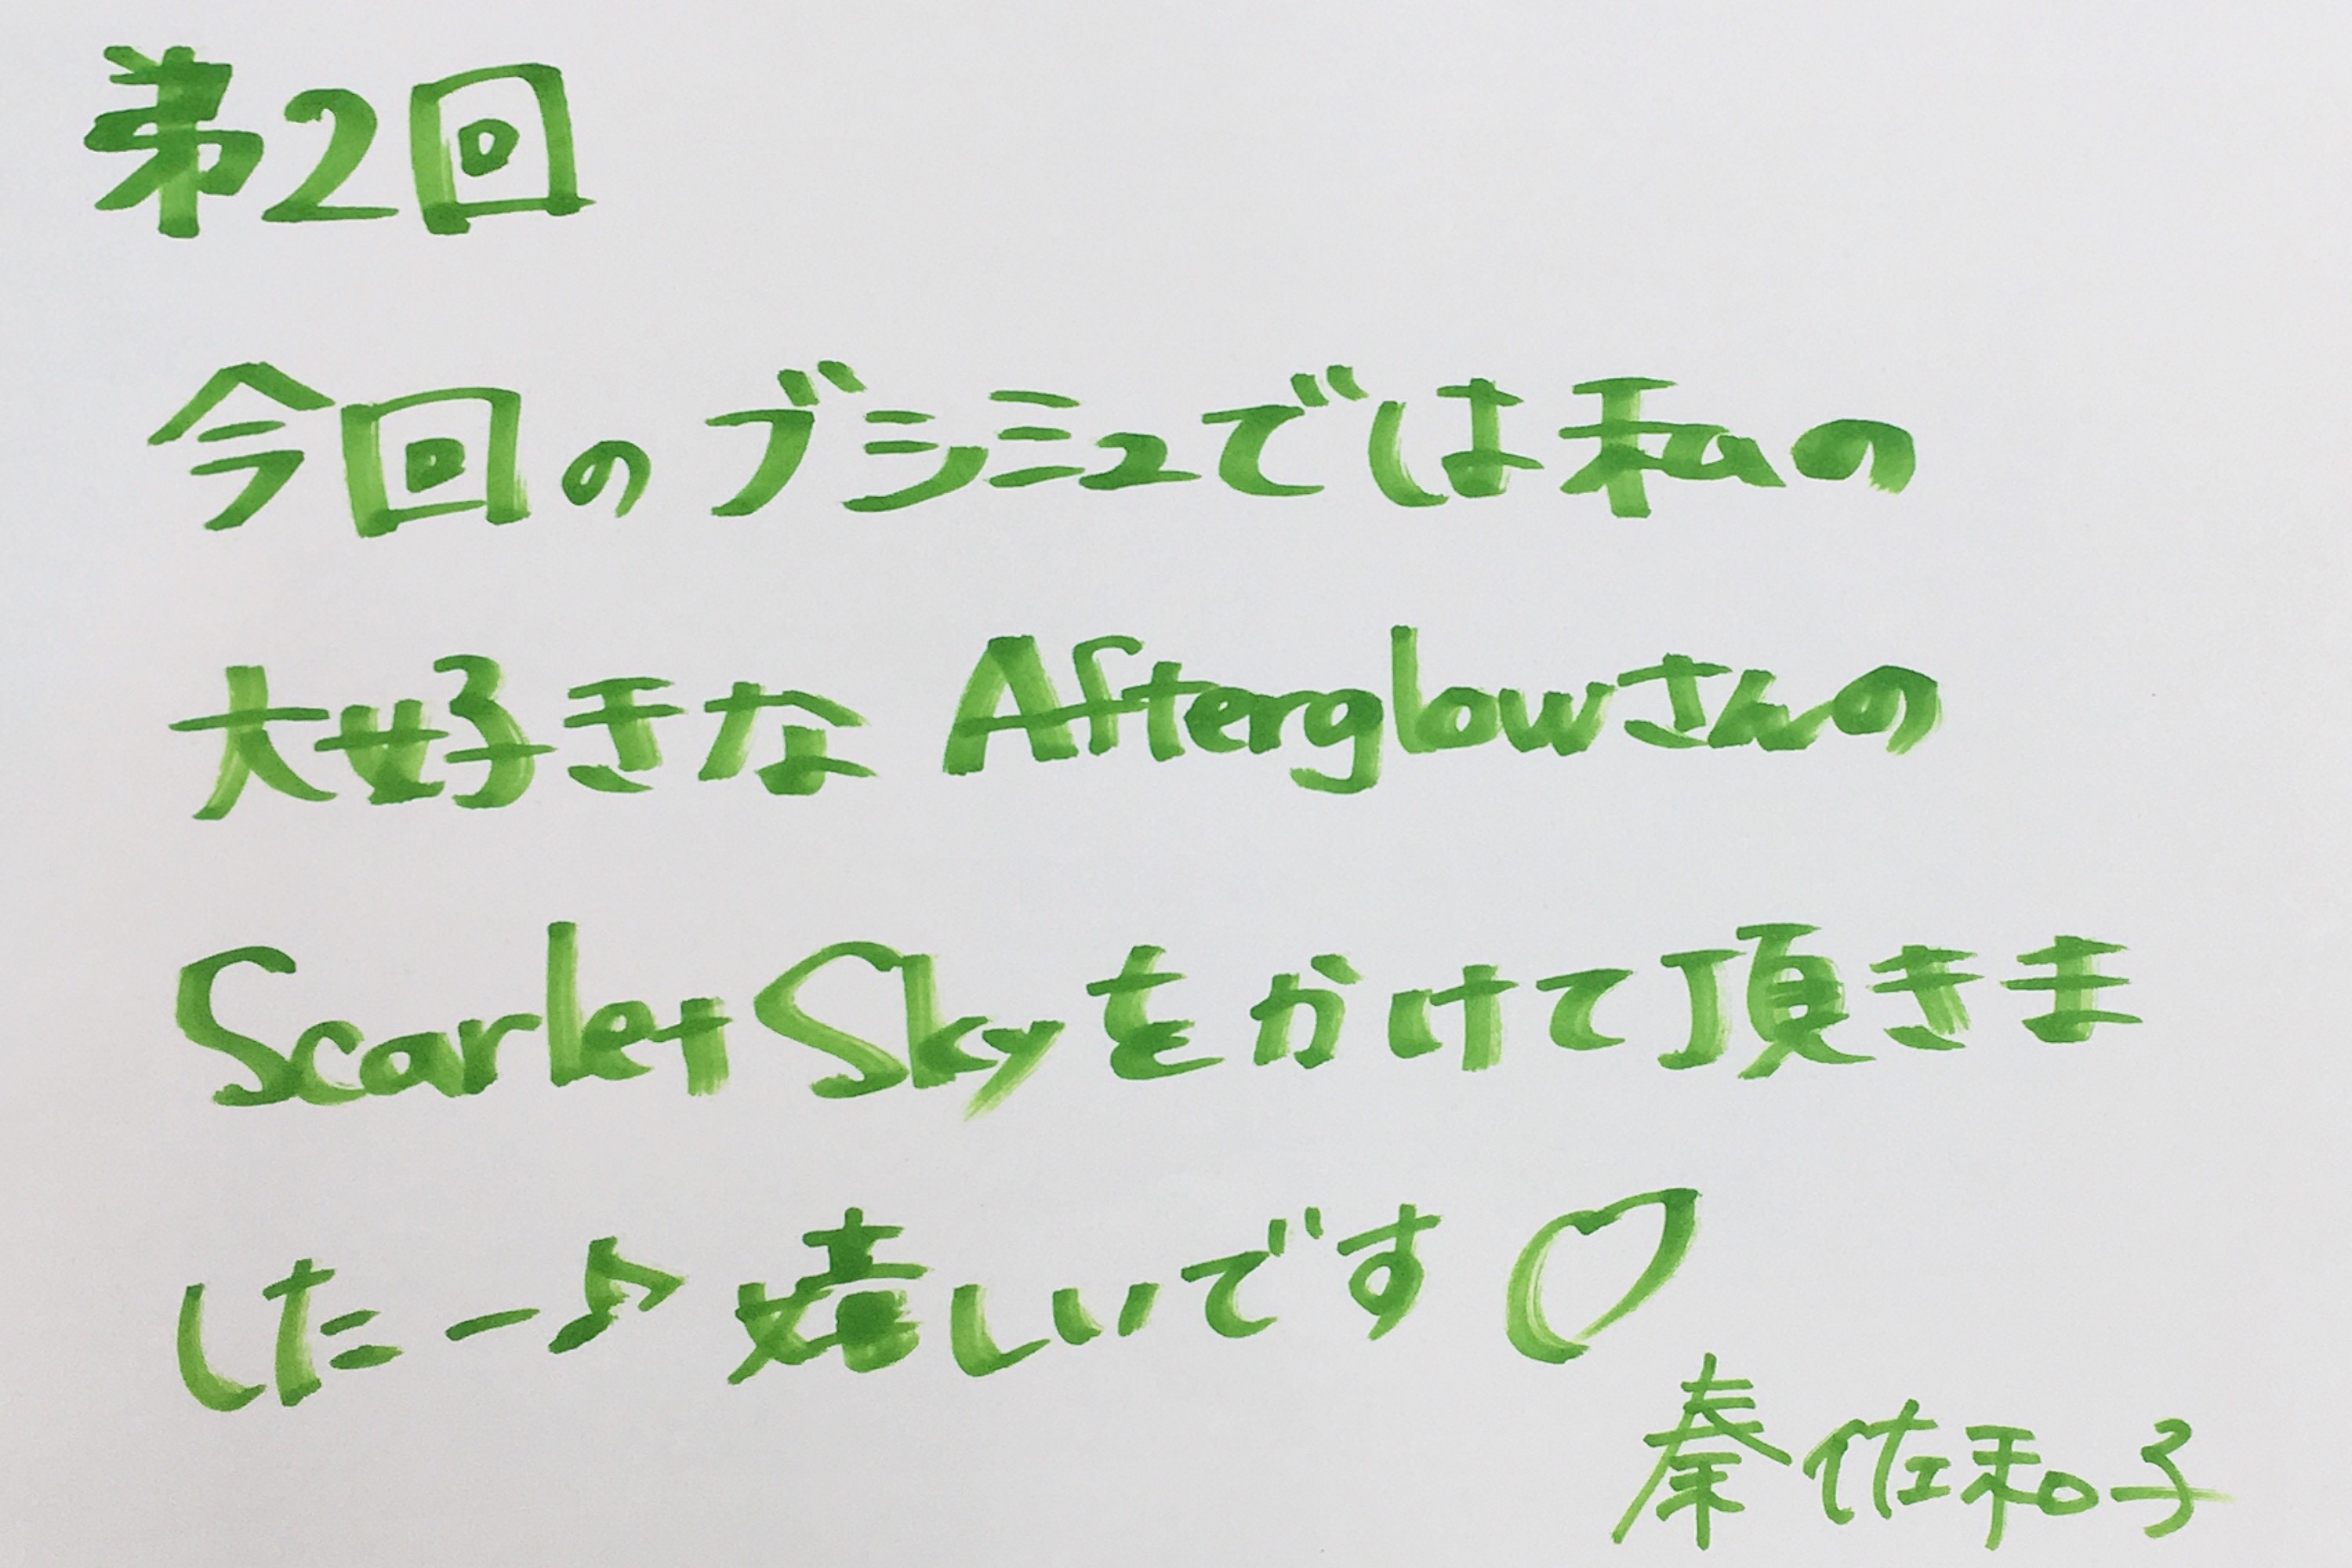 第2回
今回のブシミュでは私の
大好きなAfterglowさんの
Scarlet Skyをかけて頂きま
したー♪嬉しいです♡
秦佐和子